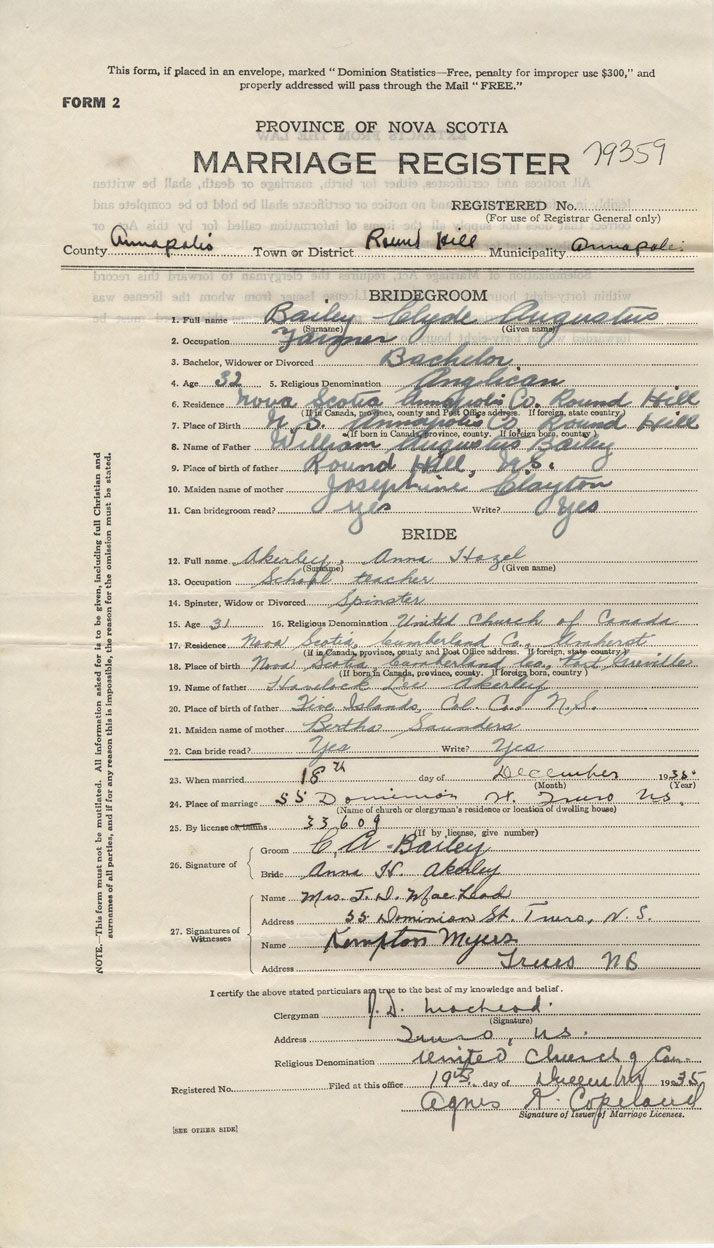 This form, if placed in an envelope, marked "Dominion Statistics—Free, penalty for improper use $300," and
properly addressed will pass through the Mail "FREE."
FORM 2
PROVINCE OF NOVA SCOTIA
MARRIAGE REGISTER 79359
REGISTERED No.
(For use of Registrar General only)
County Annapolis Town or District Round Hill Municipality Annapolis
BRIDEGROOM
1. Full name Bailey Clyde Augustus
(Surname) (Given name)
2. Occupation Farmer
3. Bachelor, Widower or Divorced Bachelor
4. Age 32 5. Religious Denomination Anglican
6. Residence Nova Scotia Annapolis Co. Round Hill
(If in Canada, province, county and Post Office address. If foreign, state country)
7. Place of Birth N.S. Annapolis Co, Round Hill
(If born in Canada, province, county. If foreign born, country)
8. Name of Father William Augustus Bailey
9. Place of birth of father Round Hill, N.S.
10. Maiden name of mother Josephine Clayton
11. Can bridegroom read? yes Write? Yes
BRIDE
12. Full name Akerley, Anna Hazel
(Surname) (Given name)
13. Occupation School teacher
14. Spinster, Widow or Divorced Spinster
15. Age 31 16. Religious Denomination United Church of Canada
17. Residence Nova Scotia, Cumberland Co., Amherst
(If in Canada, province, county and Post Office address. If foreign, state country)
18. Place of birth Nova Scotia Cumberland Co. Port Greville
(If born in Canada, province, county. If foreign born, country)
19. Name of father Havelock Lee Akerley
20. Place of birth of father Five Islands, Col. Co. N.S.
21. Maiden name of mother Bertha Saunders
22. Can bride read? Yes Write? Yes
23. When married 18th day of December 1935.
(Month) (Year)
24. Place of marriage 55 Dominion St. Truro N.S.
(Name of church or clergyman's residence or location of dwelling house)
25. By license or banns 33609
(If by license, give number)
26. Signature of
Groom C. A. Bailey
Bride Anna H. Akerley
27. Signatures of Witnesses
Name Mrs. J. D. MacLeod
Address 55 Dominion St. Truro, N.S.
Name Kempton Myers
Address Truro NS
I certify the above stated particulars are true to the best of my knowledge and belief.
Clergyman J. D. MacLeod.
(Signature)
Address Truro, N.S.
Religious Denomination United Church of Can.
Registered No. Filed at this office 19th day of December 1935
Agnes K. Copeland
Signature of Issuer of Marriage Licenses.
[SEE OTHER SIDE]
NOTE.—This form must not be mutilated. All information asked for is to be given, including full Christian and
surnames of all parties, and if for any reason this is impossible, the reason for the omission must be stated.